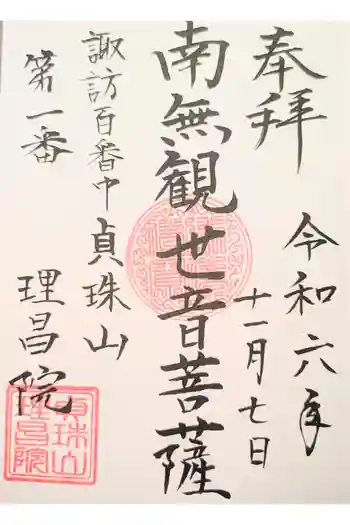 奉拝
令和六年
十一月七日
南無観世音菩薩
諏訪百番中 貞珠山
第一番
理昌院
貞珠山
理昌院